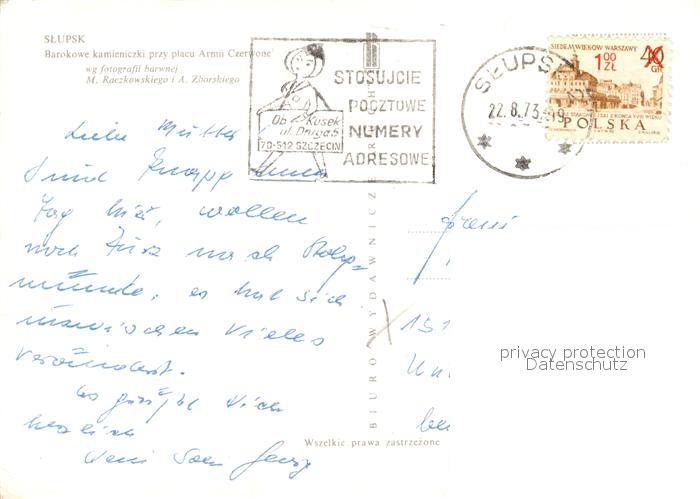 SŁUPSK
Barokowe kamieniczki przy placu Armii Czerwonej
wg fotografii barwnej
M. Raczkowskiego i A. Zborskiego
STOSUJCIE
POCZTOWE
NUMERY
ADRESOWE
Ob. Kusek
ul. Druga 5
70-512 SZCZECIN
SŁUPSK
22.8.73-19
SIEDEM WIEKÓW WARSZAWY
1,00 ZŁ
40 GR
POLSKA
Liebe Mutter
sind knapp einen
Tag hier, wollen
noch kurz nach Stolp-
münde, es hat sich
inzwischen vieles
verändert.
Es grüßt dich
herzlich
Dein Sohn Georg
BIURO WYDAWNICZE RUCH
Wszelkie prawa zastrzeżone
privacy protection
Datenschutz